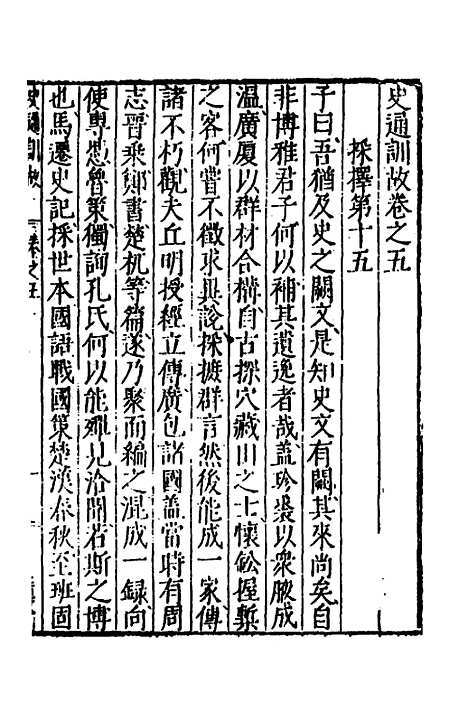 史通訓故卷之五
採擇第十五
子曰吾猶及史之闕文是知史文有闕其來尚矣自
非博雅君子何以補其遺逸者哉蓋珍裘以衆腋成
溫廣厦以群材合構自古探穴藏山之士懷鈆握槧
之客何嘗不徵求異說採摭群言然後能成一家傳
諸不朽觀夫丘明授經立傳廣包諸國蓋當時有周
志晋乘鄭書楚杌等篇遂乃聚而編之混成一録向
使專憑魯策獨詢孔氏何以能殫見洽聞若斯之博
也馬遷史記採世本國語戰國策楚漢春秋至班固
史通訓故 卷之五